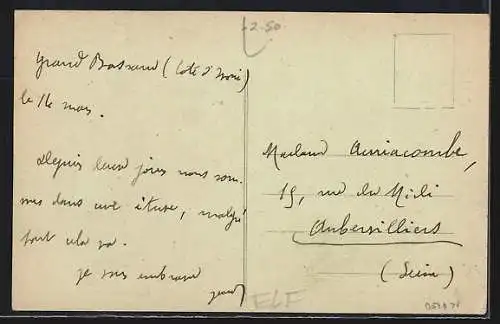 2-50
Grand Bassam (Côte d'Ivoire)
le 16 mars.
Depuis deux jours nous som-
mes dans une étuve, malgré
tout cela va.
je vous embrasse
Madame
15, rue du Midi
Aubervilliers
(Seine)
ELF